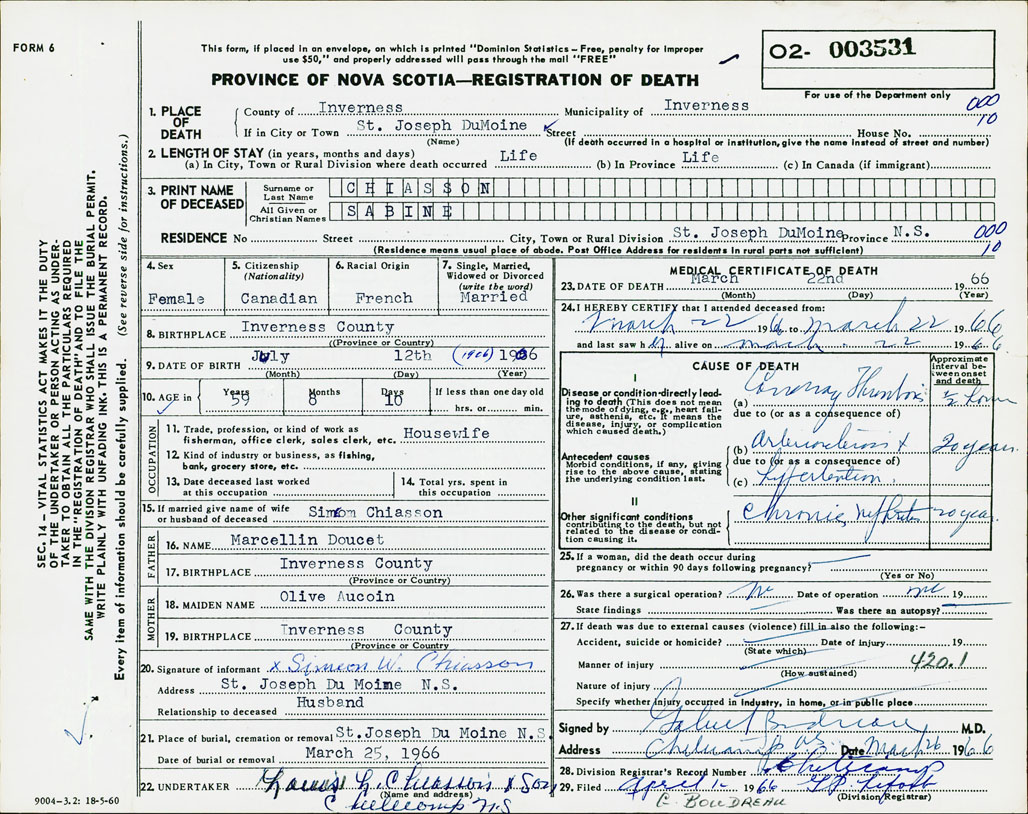 FORM 6
This form, if placed in an envelope, on which is printed "Dominion Statistics – Free, penalty for improper
use $50," and properly addressed will pass through the mail "FREE"
PROVINCE OF NOVA SCOTIA—REGISTRATION OF DEATH
02- 003531
For use of the Department only
000
10
1. PLACE OF DEATH
County of Inverness Municipality of Inverness
If in City or Town St. Joseph DuMoine Street House No.
(Name) (If death occurred in a hospital or institution, give the name instead of street and number)
2. LENGTH OF STAY (in years, months and days)
(a) In City, Town or Rural Division where death occurred Life (b) In Province Life (c) In Canada (if immigrant)
3. PRINT NAME OF DECEASED
Surname or Last Name CHIASSON
All Given or Christian Names SABINE
000
10
RESIDENCE No Street City, Town or Rural Division St. Joseph DuMoine Province N.S.
(Residence means usual place of abode. Post Office Address for residents in rural parts not sufficient)
4. Sex Female
5. Citizenship (Nationality) Canadian
6. Racial Origin French
7. Single, Married, Widowed or Divorced (write the word) Married
8. BIRTHPLACE Inverness County
(Province or County)
9. DATE OF BIRTH July 12th (1906) 1906
(Month) (Day) (Year)
10. AGE in Years 59 Months 8 Days 10 If less than one day old
hrs. or min.
OCCUPATION
11. Trade, profession, or kind of work as
fisherman, office clerk, sales clerk, etc. Housewife
12. Kind of industry or business, as fishing,
bank, grocery store, etc.
13. Date deceased last worked
at this occupation
14. Total yrs. spent in
this occupation
15. If married give name of wife
or husband of deceased Simeon Chiasson
FATHER
16. NAME Marcellin Doucet
17. BIRTHPLACE Inverness County
(Province or Country)
MOTHER
18. MAIDEN NAME Olive Aucoin
19. BIRTHPLACE Inverness County
(Province or Country
20. Signature of informant x Simeon W. Chiasson
Address St. Joseph Du Moine N.S.
Relationship to deceased Husband
21. Place of burial, cremation or removal St.Joseph Du Moine N.S.
Date of burial or removal March 25, 1966
22. UNDERTAKER Louis L. Chiasson & Son
(Name and address)
Cheticamp N.S
MEDICAL CERTIFICATE OF DEATH
23. DATE OF DEATH March 22nd 1966
(Month) (Day)
24. I HEREBY CERTIFY that I attended deceased from:
March 22 1966 to March 22 1966
and last saw her alive on march 22 1966
CAUSE OF DEATH
Approximate interval between onset and death
I
Disease or condition directly leading to death (This does not mean the mode of dying, e.g., heart failure, asthenia, etc. It means the disease, injury, or complication which caused death.)
(a) Coronary Thrombosis 1/2 hour
due to (or as a consequence of)
Antecedent causes
Morbid conditions, if any, giving rise to the above cause, stating the underlying condition last.
(b) Arteriosclerosis + 20 years
due to (or as a consequence of)
(c) Hypertention.
II
Other significant conditions
contributing to the death, but not related to the disease or condition causing it.
Chronic nephritis 20 year.
25. If a woman, did the death occur during
pregnancy or within 90 days following pregnancy?
(Yes or No)
26. Was there a surgical operation? no Date of operation 19
State findings Was there an autopsy?
27. If death was due to external causes (violence) fill in also the following:–
Accident, suicide or homicide? Date of injury 19
(State which)
Manner of injury 420.1
(How sustained)
Nature of injury
Specify whether injury occurred in industry, in home, or in public place
Signed by Gabriel Boudreau M.D.
Address Cheticamp N.S. Date March 26 1966
28. Division Registrar's Record Number Cheticamp
29. Filed April 1 1966
(Division Registrar)
C. BOUDREAU
SEC. 14 – VITAL STATISTICS ACT MAKES IT THE DUTY
OF THE UNDERTAKER OR PERSON ACTING AS UNDER-
TAKER TO OBTAIN ALL THE PARTICULARS REQUIRED
IN THE "REGISTRATION OF DEATH" AND TO FILE THE
SAME WITH THE DIVISION REGISTRAR WHO SHALL ISSUE THE BURIAL PERMIT.
WRITE PLAINLY WITH UNFADING INK. THIS IS A PERMANENT RECORD.
Every item of information should be carefully supplied. (See reverse side for instructions.)
9004–3.2: 18-5-60